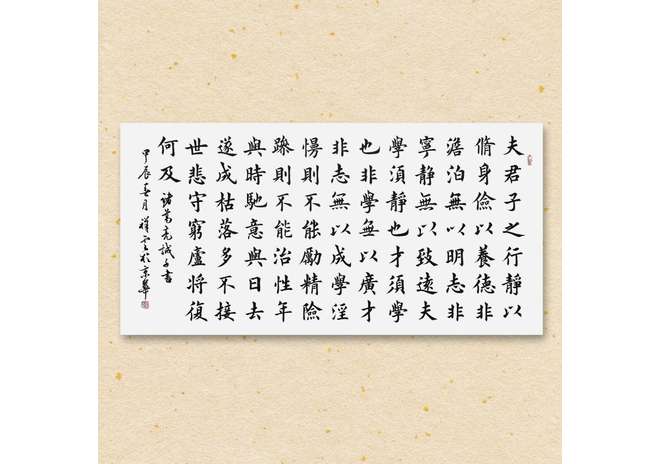 夫君子之行靜以
脩身儉以養德非
澹泊無以明志非
寧静無以致遠夫
學須靜也才須學
也非學無以廣才
非志無以成學淫
慢則不能勵精險
躁則不能治性年
與時馳意與日去
遂成枯落多不接
世悲守窮廬將復
何及
諸葛亮誡子書
甲辰春月祥雲於京華